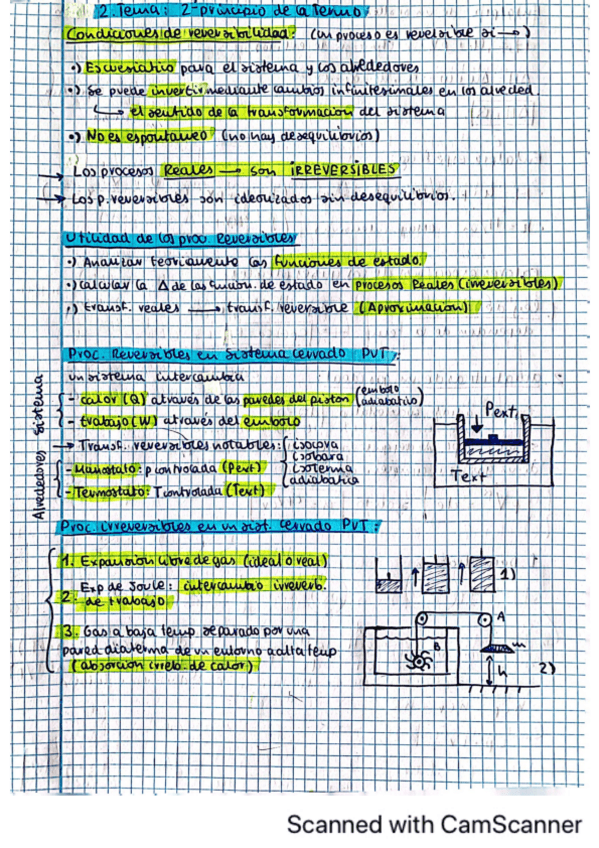 2. Tema: 2º principio de la Termo
Condiciones de reversibilidad: (un proceso es reversible si →)
·) Es cuasiestático para el sistema y los alrededores
·) Se puede invertir mediante cambios infinitesimales en los alreded.
↳ el sentido de la transformación del sistema
·) No es espontaneo (no hay desequilibrios)
→ Los procesos Reales → son IRREVERSIBLES
→ Los p. reversibles son idealizados sin desequilibrios.
Utilidad de los proc Reversibles
·) Analizar teoricamente las funciones de estado.
·) calcular la Δ de las funcion. de estado en procesos Reales (irreversibles)
·) transf. reales → transf. reversible (Aproximación)
Proc. Reversibles en sistema cerrado PVT:
un sistema intercambia
Sistema
- calor (Q) através de las paredes del piston (embolo adiabatico)
- trabajo (W) através del embolo
→ Transf. reversibles notables: isocora
isobara
isoterma
adiabatica
Alrededores
- Manostato: p controlada (Pext)
- Termostato: T controlada (Text)
Pext
Text
Proc. irreversibles en un sist. cerrado PVT:
1. Expansion libre de gas (ideal o real)
2. Exp de Joule: intercambio irreverb. de trabajo
3. Gas a baja temp separado por una
pared diaterma de un entorno a alta temp
(absorcion irrev. de calor)
1)
A
B
m
h
2)
Scanned with CamScanner